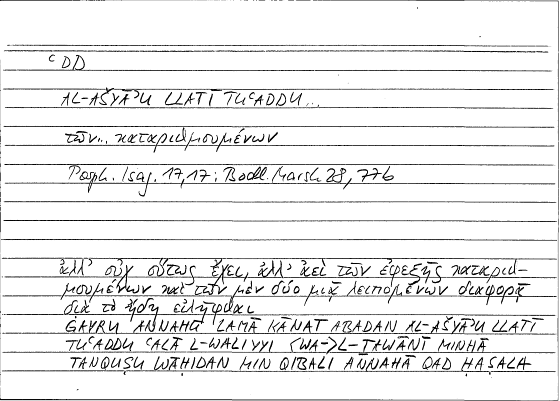 ᶜDD
AL-AŠYĀʾU LLATĪ TUᶜADDU...
τῶν... καταριθμουμένων
Porph. Isag. 17,17; Bodl. Marsh 28, 77b
ἀλλ' οὐχ οὕτως ἔχει, ἀλλ' ἀεὶ τῶν ἐφεξῆς καταριθ-
μουμένων καὶ τῶν μὲν δύο μιᾷ λειπομένων διαφορᾷ
διὰ τὸ ἤδη εἰλῆφθαι
ĠAYRU ANNAHĀ LAMĀ KĀNAT ABADAN AL-AŠYĀʾU LLATĪ
TUᶜADDU ᶜALĀ L-WALIYYI <WA->L-ṮAWĀNĪ MINHĀ
TANQUṢU WĀḤIDAN MIN QIBALI ANNAHĀ QAD ḤAṢALA